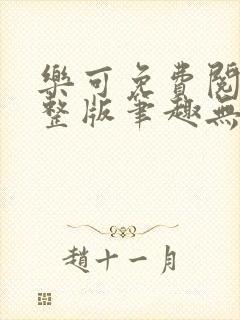 樂可免費閱
整版筆趣無
趙十一月